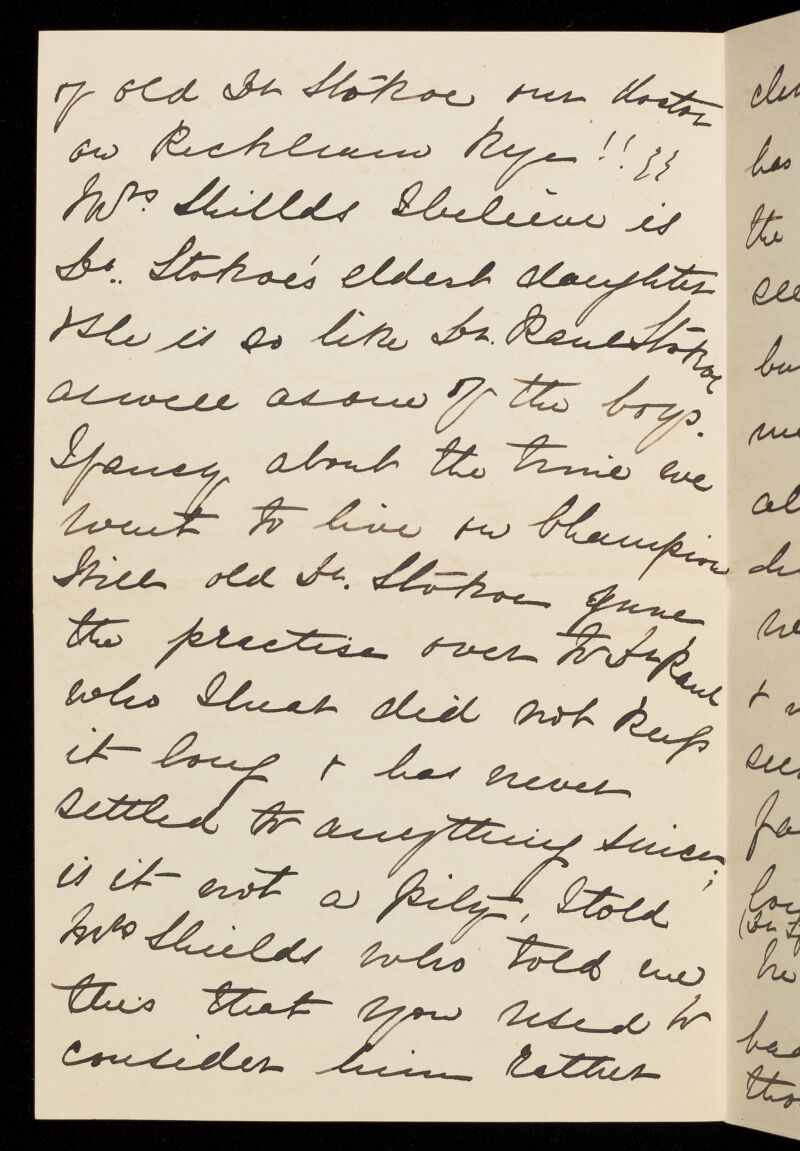 of old Dr Stokoe our doctor
on Peckham Rye!!
Mrs. Shillds I believe is
Dr. Stokoe's eldest daughter
& she is so like Dr. Paul Stokoe
as well as one of the boys.
I fancy about the time we
went to live on Champion
Hill old Dr. Stokoe gave
the practise over to Dr Paul
who I hear did not keep
it long & has never
settled to anything since;
is it not a pity, I told
Mrs Shields who told me
this that you used to
consider him rather
has
the
he